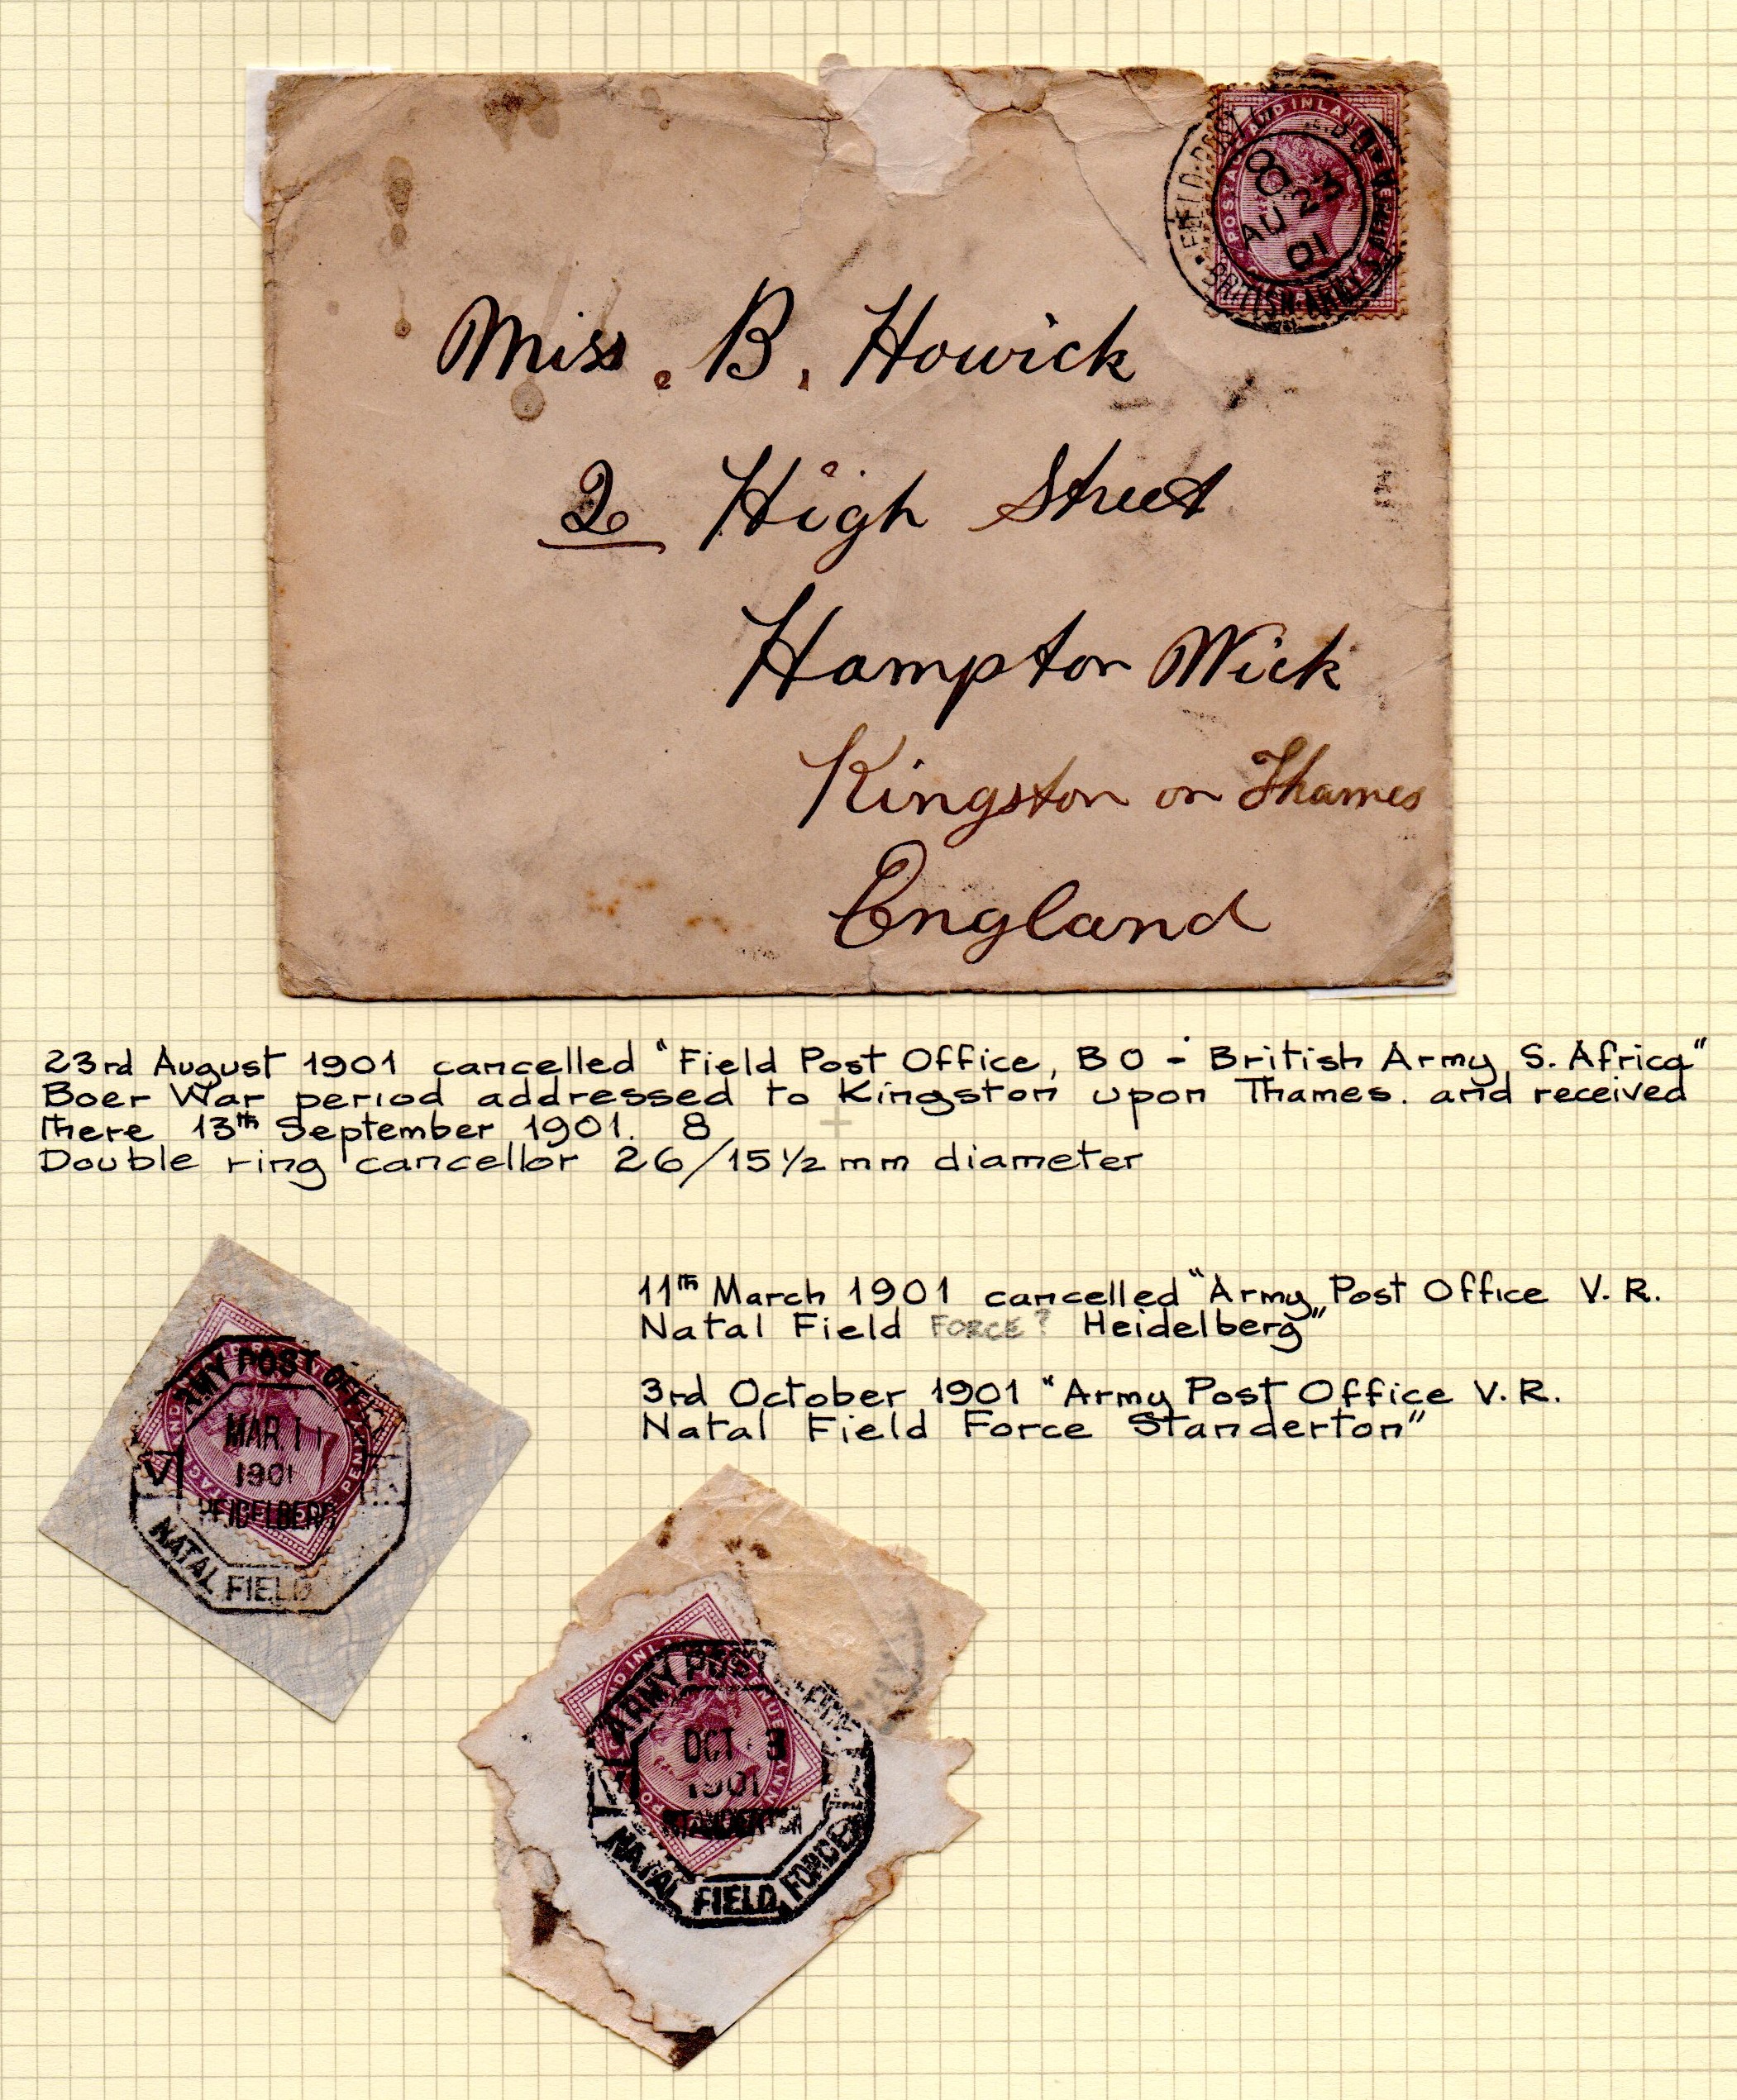 Miss. B. Howick
2 High Street
Hampton Wick
Kingston on Thames
England
FIELD PO
BRITISH ARMY S
AU 23
01
POSTA AND INLAN
23rd August 1901 cancelled "Field Post Office, B O - British Army S. Africa"
Boer War period addressed to Kingston upon Thames. and received
there 13th September 1901. 8
Double ring cancellor 26/15½ mm diameter
11th March 1901 cancelled "Army Post Office V. R.
Natal Field FORCE? Heidelberg"
3rd October 1901 "Army Post Office V. R.
Natal Field Force Standerton"
ARMY POST OFFI
MAR. 11
1901
HEIDELBERG
V
NATAL FIELD
ARMY POST OFFICE
OCT 3
1901
STANDERTON
NATAL FIELD FORCE